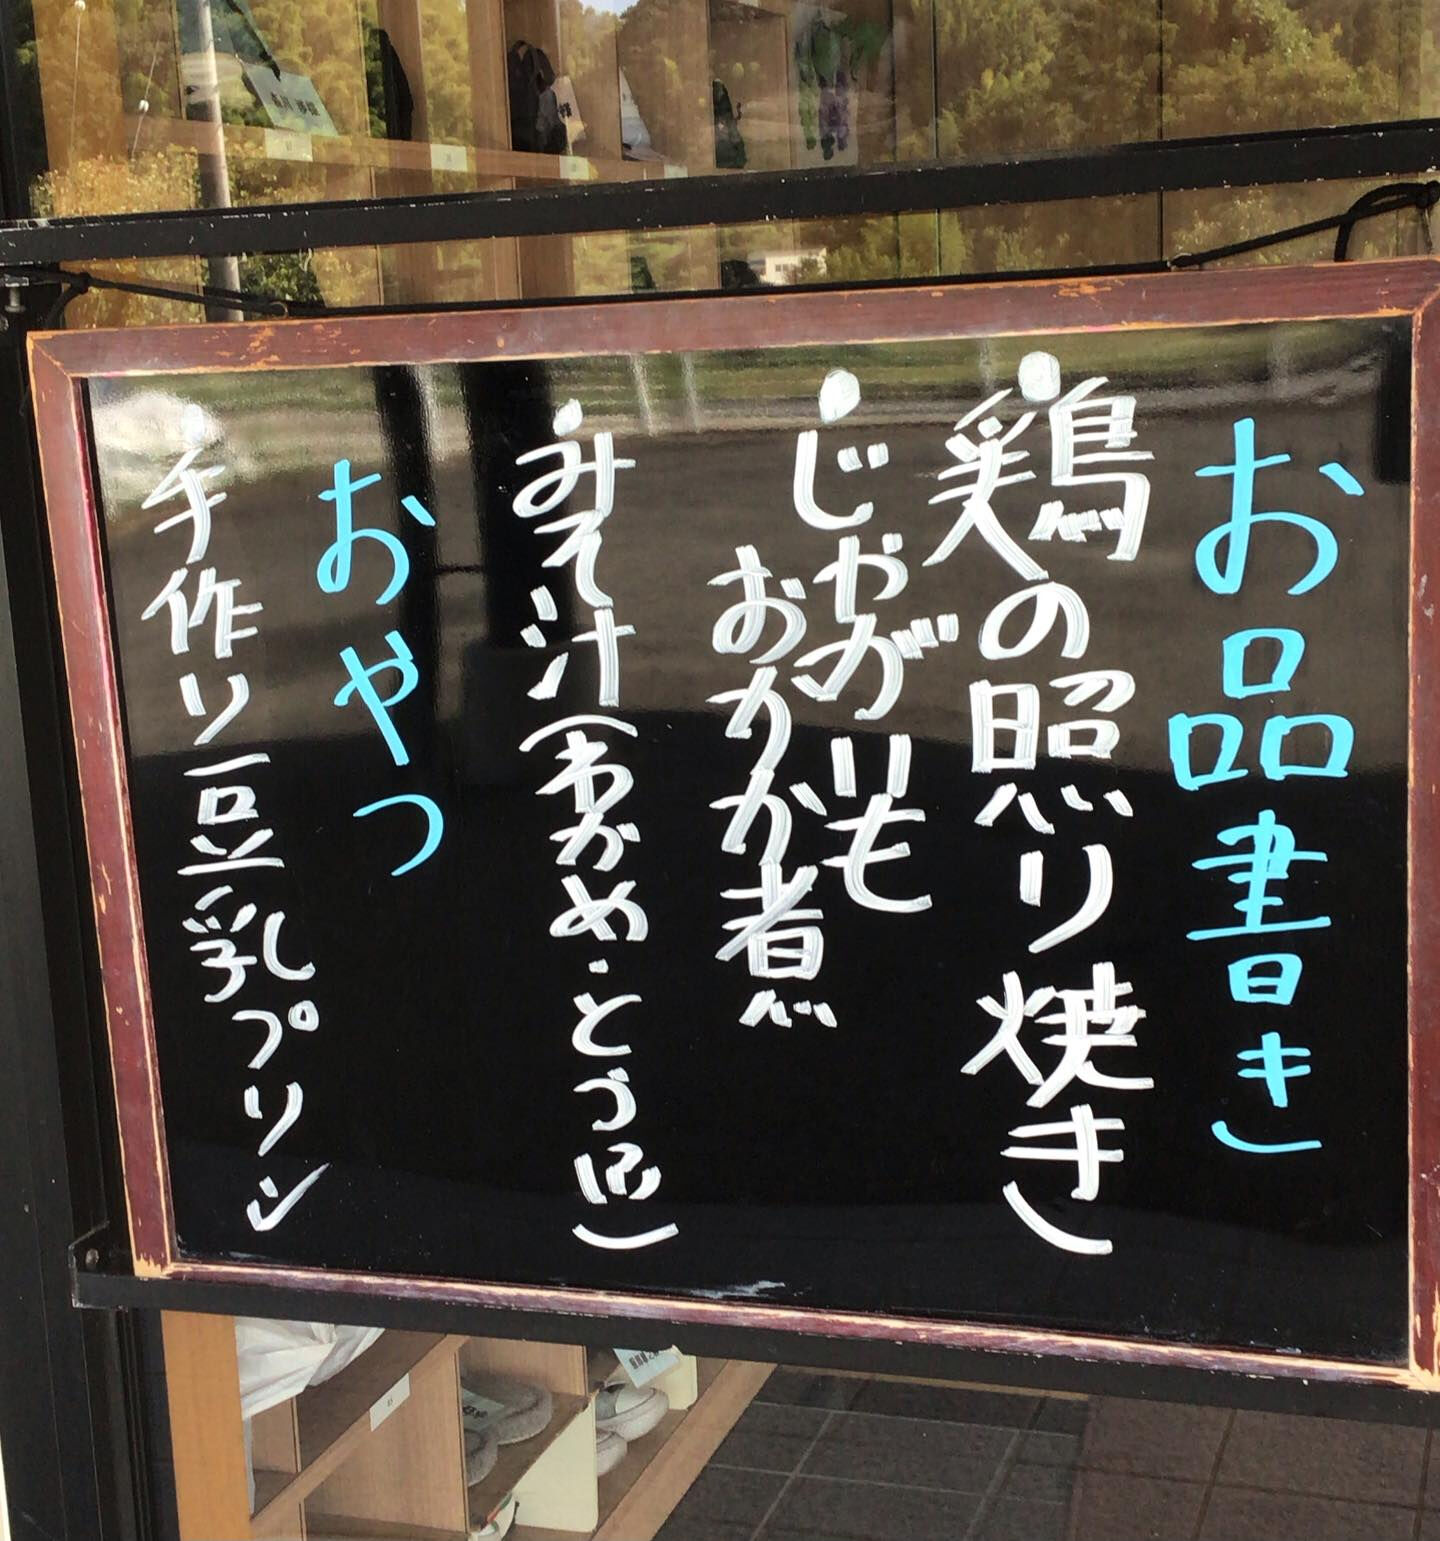 お品書き
・鶏の照り焼き
・じゃがいも
おかか煮
・みそ汁(わかめ・とうふ)
おやつ
・手作り豆乳プリン